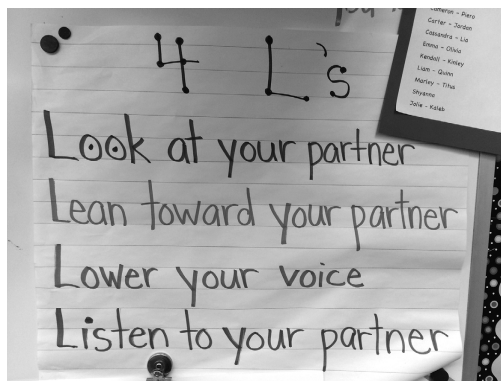 4 L's
Look at your partner
Lean toward your partner
Lower your voice
Listen to your partner
Cameron - Piero
Carter - Jordan
Cassandra - Lia
Emma - Olivia
Kendall - Kinley
Liam - Quinn
Marley - Titus
Shyanne
Jolie - Kaleb